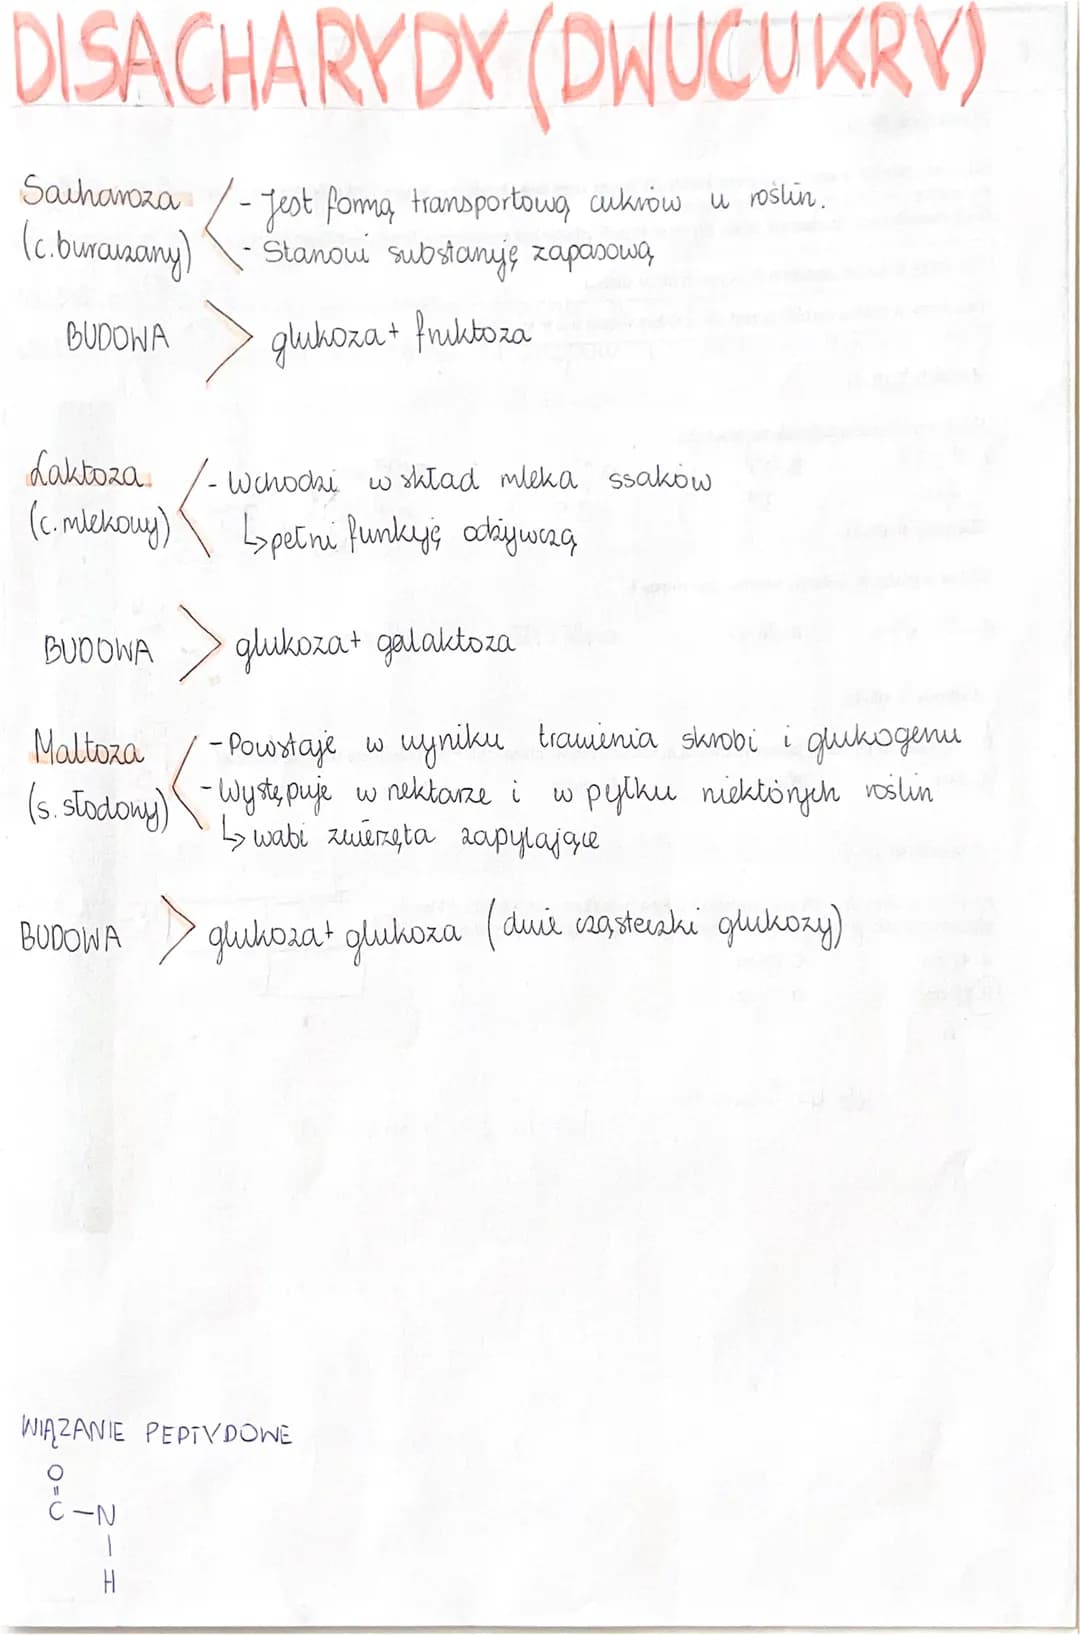 DISACHARYDY (DWUCUKRY)
Sacharoza
(c.buraczany)
- Jest formą transportową cukrów u roślin.
- Stanowi substancję zapasową
BUDOWA > glukoza + fruktoza
Laktoza
(c. mlekowy)
- Wchodzi w skład mleka ssaków
↳ pełni funkcję odżywczą
BUDOWA > glukoza + galaktoza
Maltoza
(s. słodowy)
- Powstaje w wyniku trawienia skrobi i glukogenu
- Występuje w nektarze i w pyłku niektórych roślin
↳ wabi zwierzęta zapylające
BUDOWA > glukoza + glukoza (dwie cząsteczki glukozy)
WIĄZANIE PEPTYDOWE
O
C - N
H